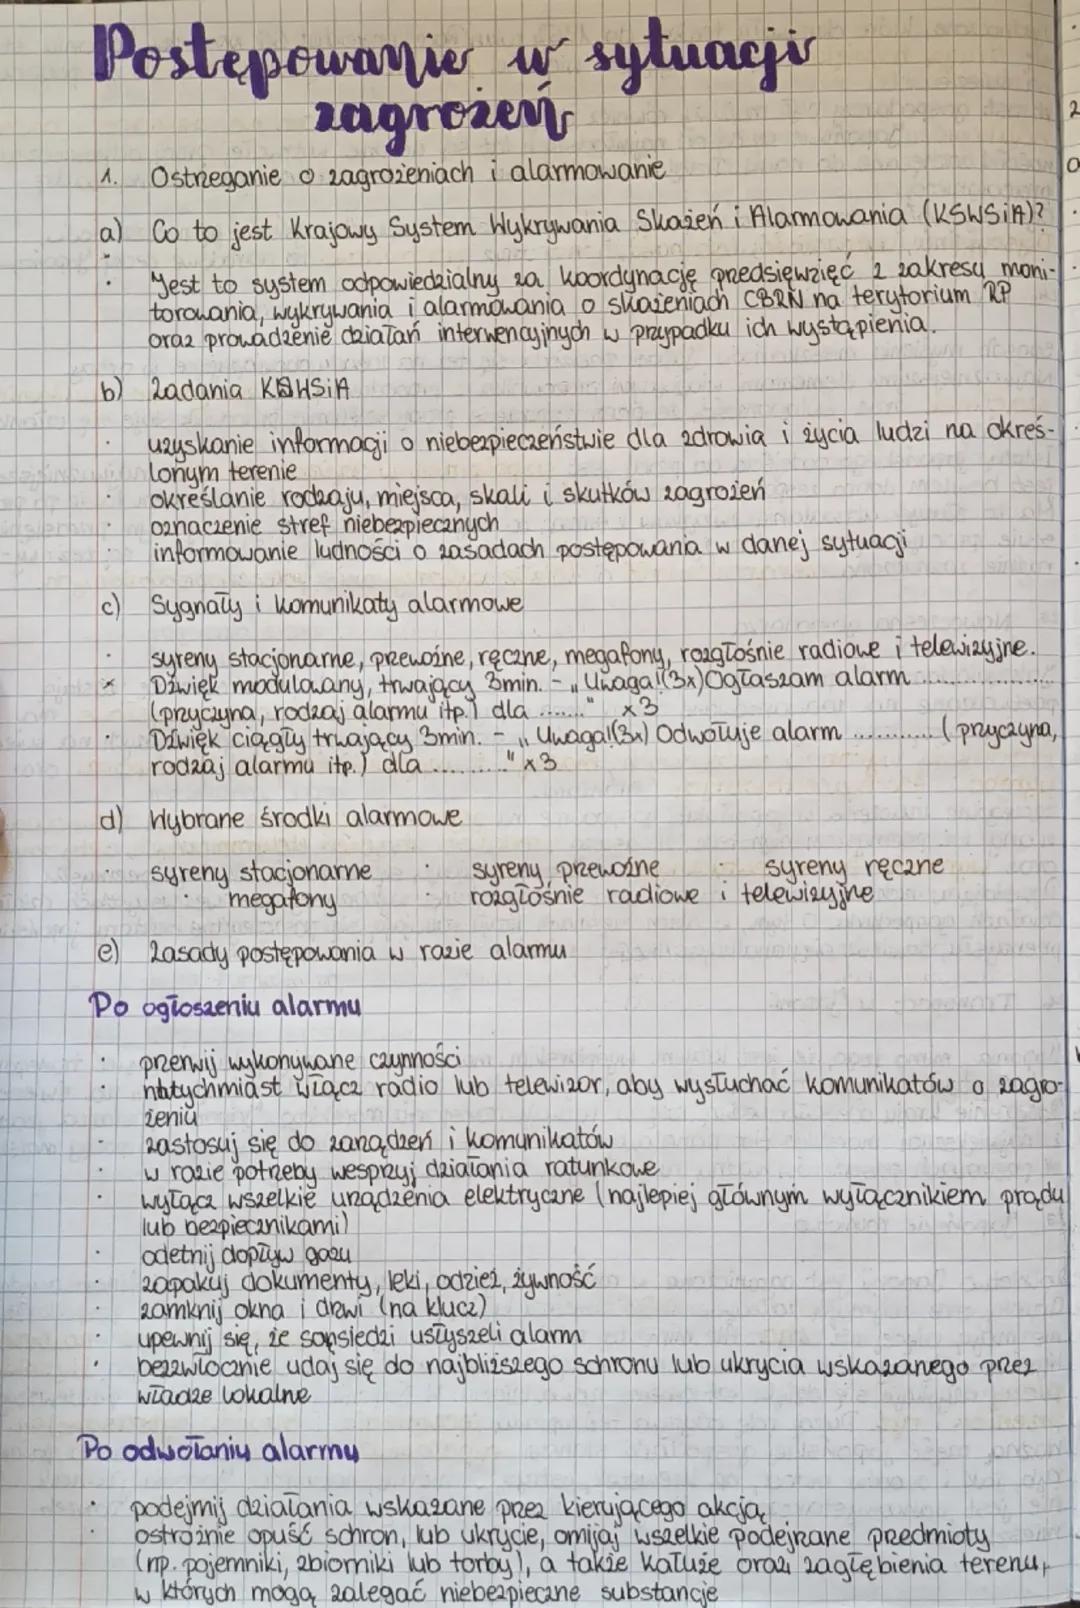 Postępowanie w sytuacji
zagrożeń
1. Ostrzeganie o zagrożeniach i alarmowanie
a) Co to jest Krajowy System Wykrywania Skażeń i Alarmowania (KSWSiA)?
· Jest to system odpowiedzialny za koordynację przedsięwzięć z zakresu moni-
torowania, wykrywania i alarmowania o skażeniach CBRN na terytorium RP
oraz prowadzenie działań interwencyjnych w przypadku ich wystąpienia.
b) Zadania KSWSiA
· uzyskanie informacji o niebezpieczeństwie dla zdrowia i życia ludzi na okreś-
lonym terenie
· określanie rodzaju, miejsca, skali i skutków zagrożeń
· oznaczenie stref niebezpiecznych
· informowanie ludności o zasadach postępowania w danej sytuacji
c) Sygnały i komunikaty alarmowe
· syreny stacjonarne, przewoźne, ręczne, megafony, rozgłośnie radiowe i telewizyjne.
· Dźwięk modulowany, trwający 3min. - „Uwaga!(3x)Ogłaszam alarm ..................
(przyczyna, rodzaj alarmu itp.) dla ......." x3
· Dźwięk ciągły trwający 3min. - „Uwaga!(3x) Odwołuje alarm ........... (przyczyna,
rodzaj alarmu itp.) dla .........." x3
d) Wybrane środki alarmowe
· syreny stacjonarne · syreny przewoźne · syreny ręczne
· megafony · rozgłośnie radiowe i telewizyjne
e) Zasady postępowania w razie alarmu
Po ogłoszeniu alarmu
· przerwij wykonywane czynności
· natychmiast włącz radio lub telewizor, aby wysłuchać komunikatów o zagro-
żeniu
· zastosuj się do zarządzeń i komunikatów
· w razie potrzeby wesprzyj działania ratunkowe
· wyłącz wszelkie urządzenia elektryczne (najlepiej głównym wyłącznikiem prądu
lub bezpiecznikami)
· odetnij dopływ gazu
· zapakuj dokumenty, leki, odzież, żywność
· zamknij okna i drzwi (na klucz)
· upewnij się, że sąsiedzi usłyszeli alarm
· bezzwłocznie udaj się do najbliższego schronu lub ukrycia wskazanego przez
władze lokalne
Po odwołaniu alarmu
· podejmij działania wskazane przez kierującego akcją
· ostrożnie opuść schron, lub ukrycie, omijaj wszelkie podejrzane przedmioty
(np. pojemniki, zbiorniki lub torby), a także kałuże oraz zagłębienia terenu,
w których mogą zalegać niebezpieczne substancje